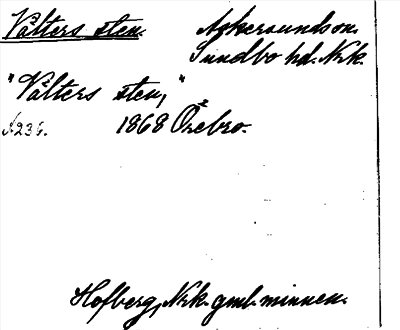 Våtters sten.
Askersunds sn.
Sundbo hd. Nrk.
"Våtters sten,"
s. 236. 1868 Örebro.
Hofberg, Nrk. gml. minnen.